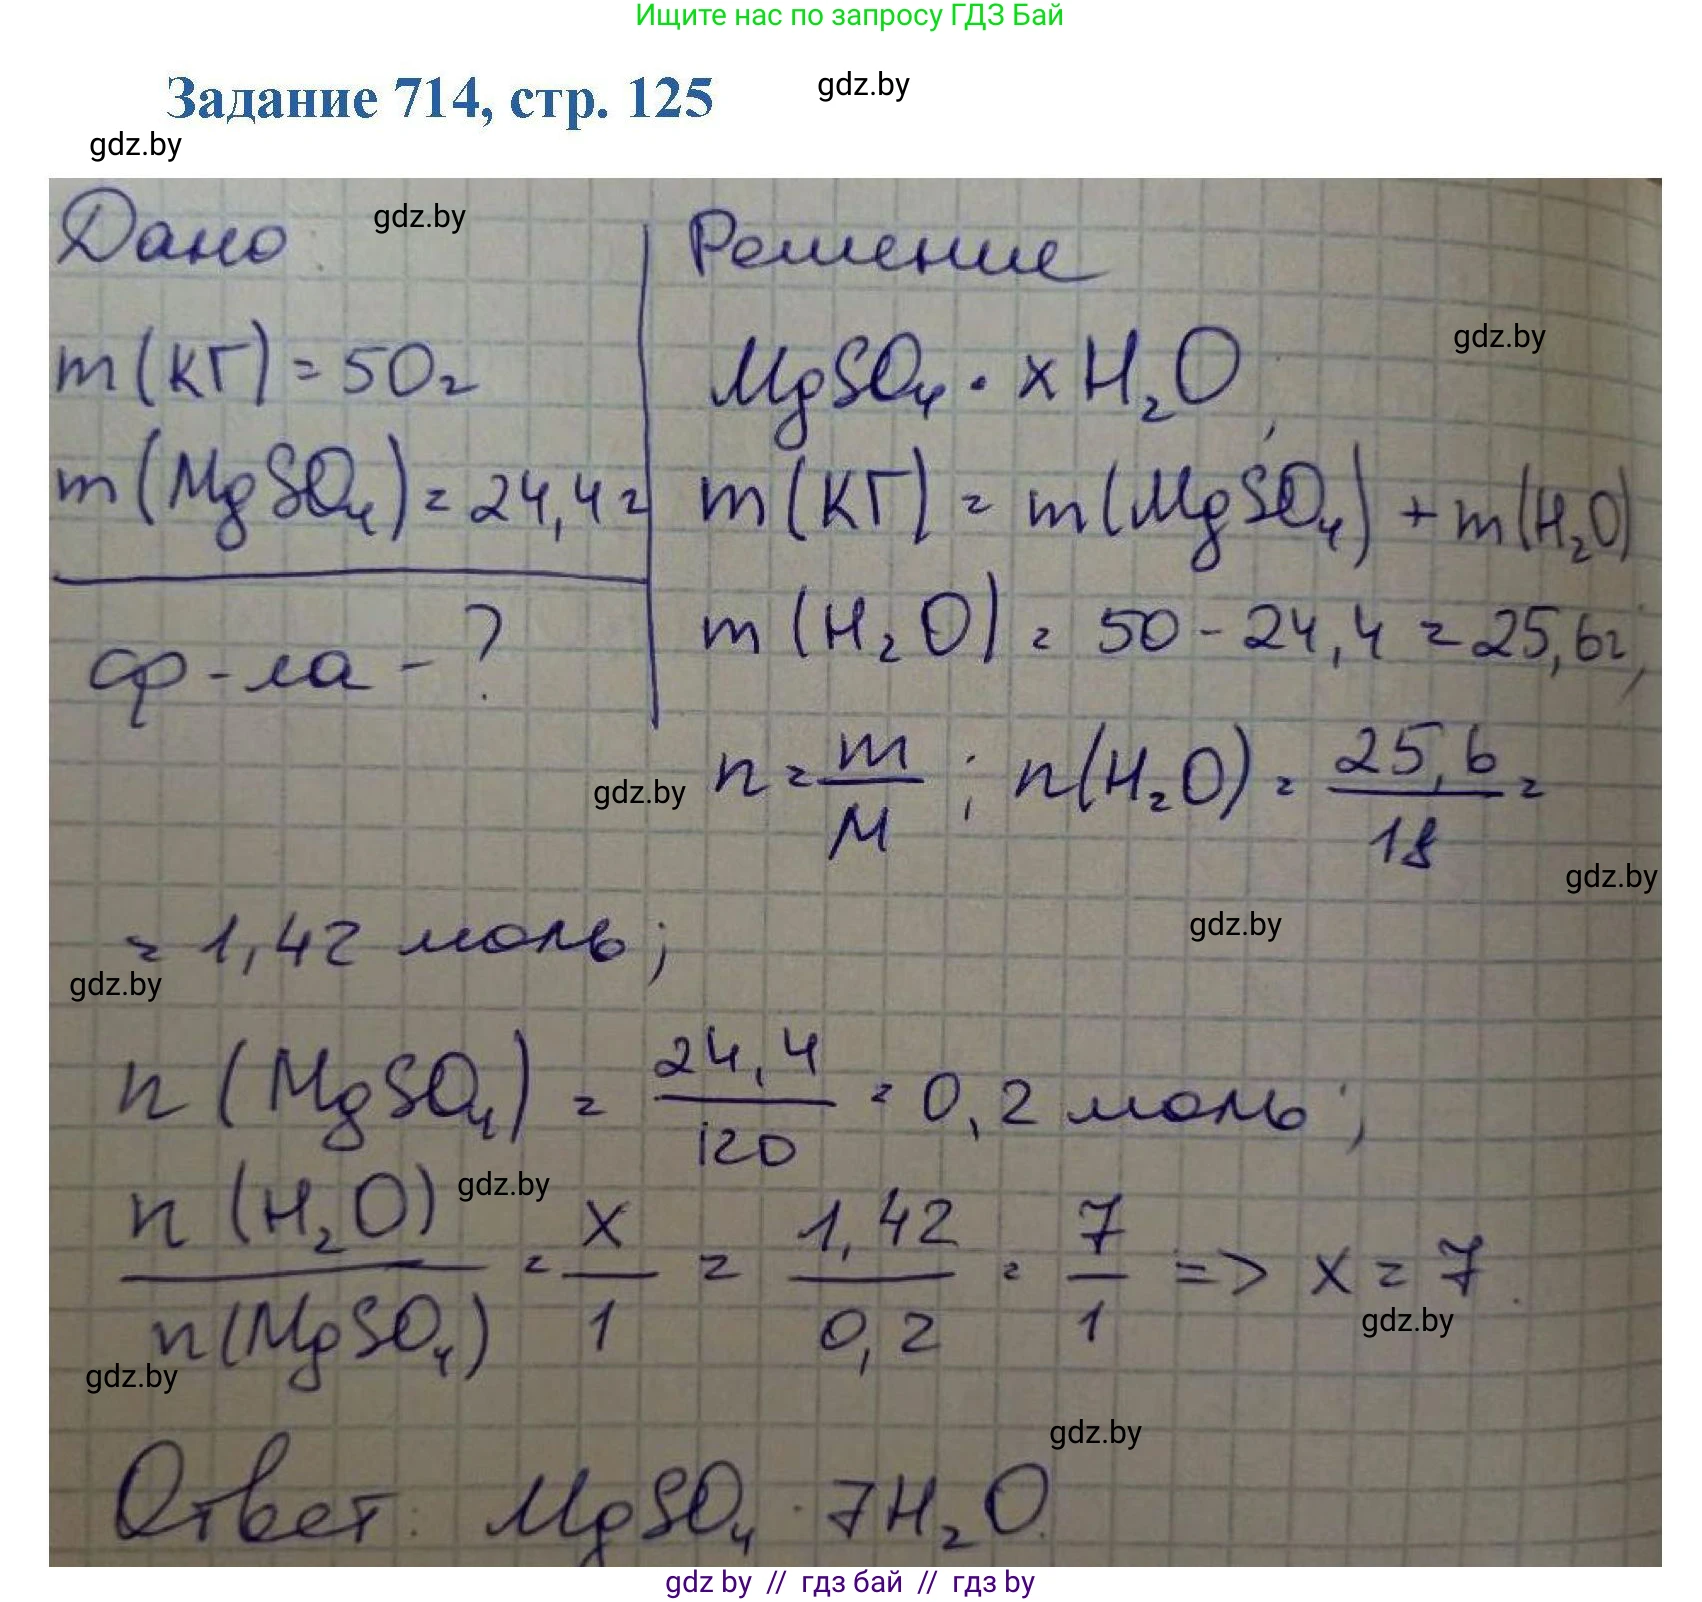 Ищите нас по запросу ГДЗ Бай
Задание 714, стр. 125
gdz.by
gdz.by
Дано
gdz.by
m(КГ) = 50г
m(MgSO₄) = 24,4г
ф-ла - ?
Решение
gdz.by
MgSO₄ · xH₂O;
m(КГ) = m(MgSO₄) + m(H₂O)
m(H₂O) = 50 - 24,4 = 25,6г;
n = m/M; n(H₂O) = 25,6/18 =
gdz.by
gdz.by
= 1,42 моль;
gdz.by
gdz.by
n(MgSO₄) = 24,4/120 = 0,2 моль;
gdz.by
n(H₂O)/n(MgSO₄) = x/1 = 1,42/0,2 = 7/1 => x = 7.
gdz.by
gdz.by
gdz.by
Ответ: MgSO₄ · 7H₂O.
gdz by // гдз бай // гдз by